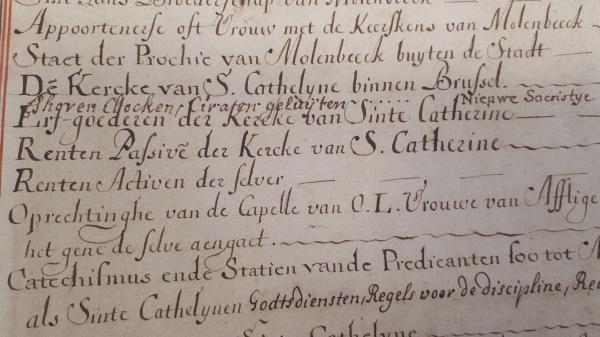 Appoorteneise oft Vrouw met de Keerskens van Molenbeeck
Staet der Prochie van Molenbeeck buyten de Stadt
Dē Kercke van S. Cathelyne binnen Brussel.
Clocken, Ciraten geluÿten ...... Nieuwe Sacristye
Erf-goederen der Kercke van Sinte Catherine
Renten Passivē der Kercke van S. Catherine
Renten Activen der selver
Oprechtinghe van de Capelle van O.L. Vrouwe van Afflige
het gene de selve aengaet.
Catechismus ende Statien vande Predicanten soo tot
als Sinte Cathelynen Godtsdiensten, Regels voor de discipline,
Cathelyne